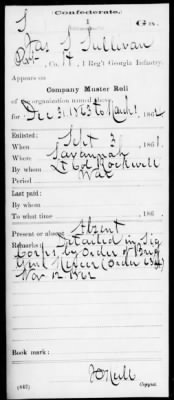 Confederate.
S 1 Ga.
Jas S Sullivan
Pvt, Co. , 1 Reg't Georgia Infantry.
Appears on
Company Muster Roll
of the organization named above,
for Dec 31, 1863 to March 1, 1864
Enlisted:
When Sept 3, 1861
Where Savannah
By whom Lt Col Rockwell
Period War
Last paid:
By whom
To what time , 186 .
Present or absent Absent
Remarks: Detailed in Sig
Corps, by order of Brig
Genl Mercer (Order
Nov 12 1862
Book mark:
(642) Copyist.